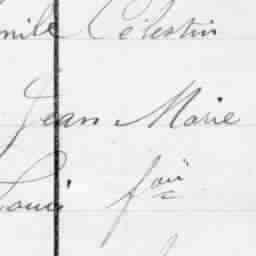 mile Célestin
Jean Marie
Louis fois